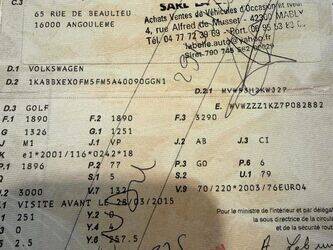 C.3
65 RUE DE BEAULIEU
16000 ANGOULEME
SARL
Achats Ventes de Véhicules d'Occasion et
4, rue Alfred de Musset - 42300 MABLY
Tél. 04 77 72 39 69
labelle.auto@yahoo.fr
D.1 VOLKSWAGEN
D.2 1KABBXEX0FM5FM5A40090GGN1
D.2.1
D.3 GOLF E. WVWZZZ1KZ7P082882
F.1 1890 F.2 1890 F.3 3290
G 1326 G.1 1251
J M1 J.1 VP J.2 AB J.3 CI
K e1*2001/116*0242*18
P.1 1896 P.2 77 P.3 GO P.6 6
S.2 U.1 79
U.2 3000 V.7 132 V.9 70/220*2003/76EURO4
VISITE AVANT LE 28/03/2015
Y.1 251 Y.2 0
Y.3 0 Y.4 4
Y.6 257.5
Pour le ministre de l'intérieur et par délégat
la sous directrice de la circula
et de la sécurité rout